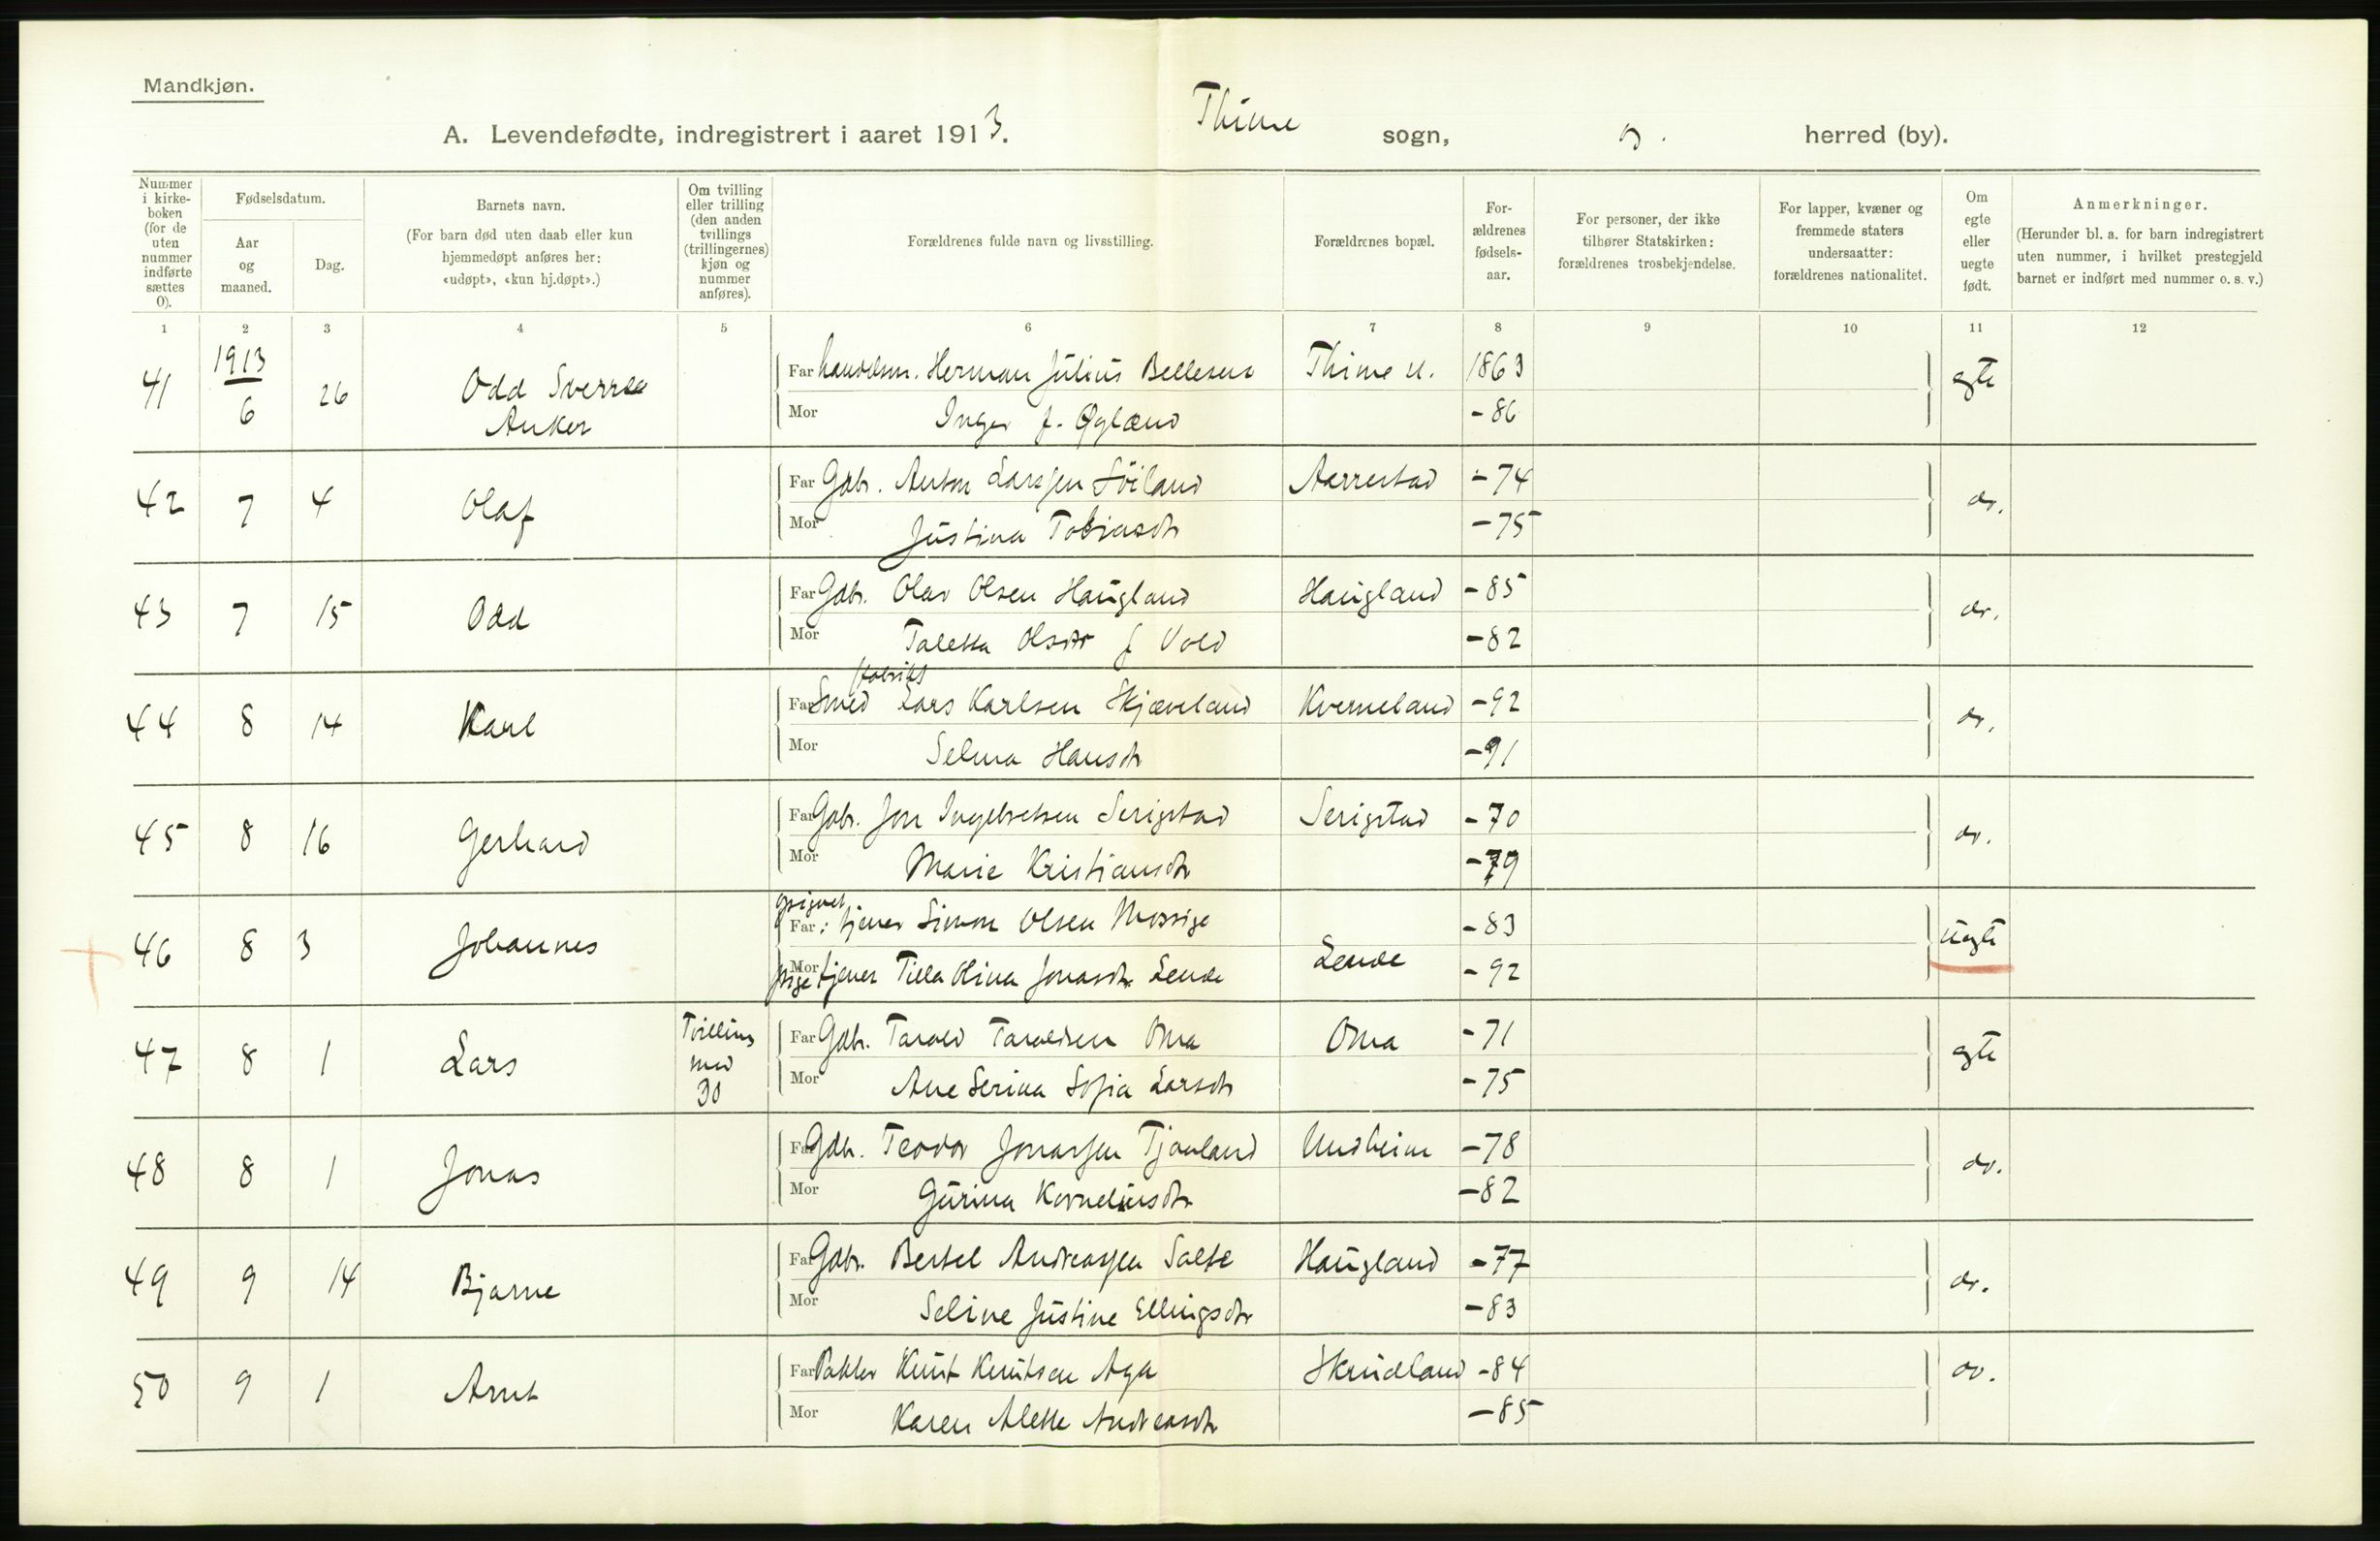 Mandkjøn.
A. Levendefødte, indregistrert i aaret 1913. Thime sogn, herred (by).
Nummer i kirkeboken (for de uten nummer indførte sættes 0).
Fødselsdatum.
Aar og maaned.
Dag.
Barnets navn.
(For barn død uten daab eller kun hjemmedøpt anføres her: «udøpt», «kun hj.døpt».)
Om tvilling eller trilling (den anden tvillings (trillingernes) kjøn og nummer anføres).
Forældrenes fulde navn og livsstilling.
Forældrenes bopæl.
Forældrenes fødselsaar.
For personer, der ikke tilhører Statskirken: forældrenes trosbekjendelse.
For lapper, kvæner og fremmede staters undersaatter: forældrenes nationalitet.
Om egte eller uegte født.
Anmerkninger.
(Herunder bl. a. for barn indregistrert uten nummer, i hvilket prestegjeld barnet er indført med nummer o. s. v.)
1 2 3 4 5 6 7 8 9 10 11 12
41 1913 6 26 Odd Sverre Anker Far Herman Julius Bellesen Thime 1863 egte
Mor Inger f. Øglænd -86
42 7 4 Olaf Far Gdbr. Anton Larssen Söiland Aarrestad -74 do.
Mor Justina Tobiasdtr -75
43 7 15 Odd Far Gdbr. Olav Olsen Haugland Haugland -85 do.
Mor Taletta Olsdtr f Vold -82
44 8 14 Karl Far Smed fabrikk Lars Karlsen Skjæveland Kverneland -92 do.
Mor Selma Hansdtr -91
45 8 16 Gerhard Far Gdbr. Jon Ingebretsen Serigstad Serigstad -70 do.
Mor Marie Kristiansdtr -79
46 8 3 Johannes Far: tjener Simon Olsen Mossige -83 uegte
Mor pige tjener Tilla Olina Jonasdtr. Lende Lende -92
47 8 1 Lars Tvilling med 30 Far Gdbr. Tarald Taraldsen Oma Oma -71 egte
Mor Ane Serina Sofia Larsdtr -75
48 8 1 Jonas Far Gdbr. Teodor Jonassen Tjauland Undheim -78 do.
Mor Gurina Korneliusdtr -82
49 9 14 Bjarne Far Gdbr. Bertel Andreassen Salte Haugland -77 do.
Mor Seline Justine Ellingsdtr -83
50 9 1 Arnt Far Knut Knutsen Aga Skrudland -84 do.
Mor Karen Alette Andreasdtr -85